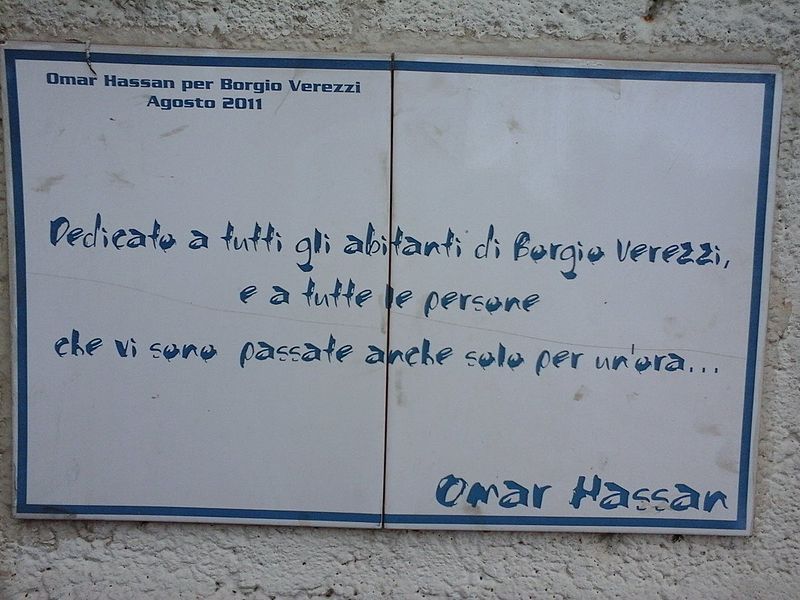 Omar Hassan per Borgio Verezzi
Agosto 2011
Dedicato a tutti gli abitanti di Borgio Verezzi,
e a tutte le persone
che vi sono passate anche solo per un'ora...
Omar Hassan